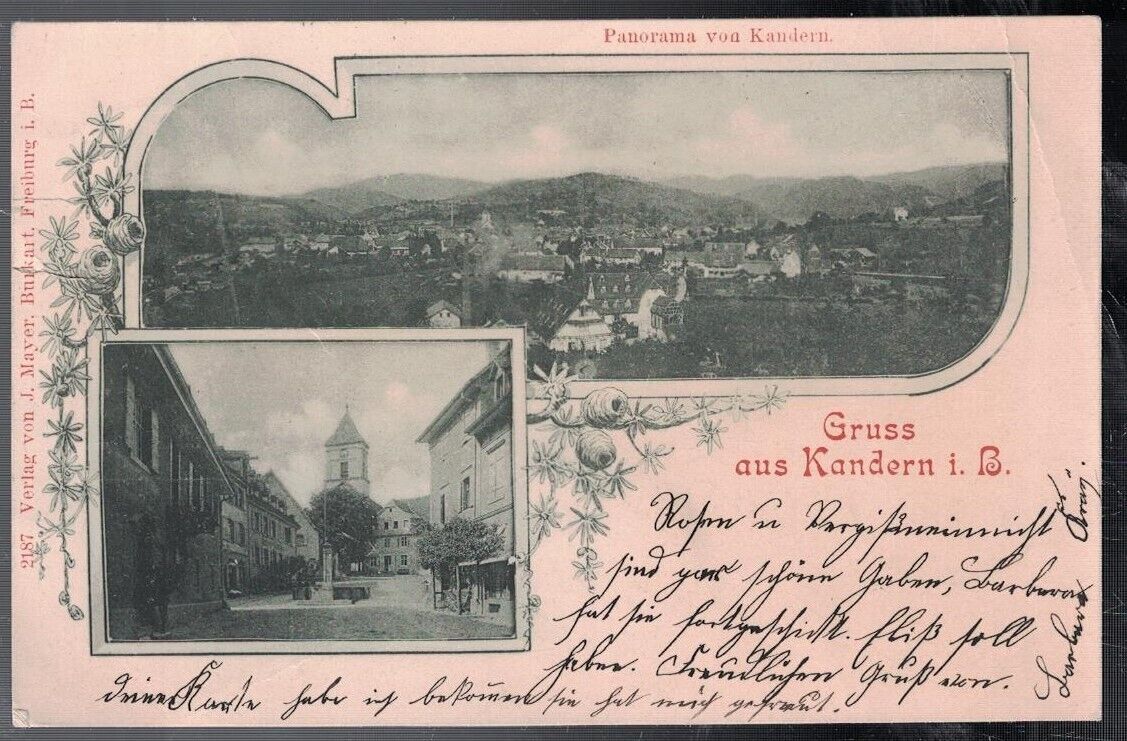 Panorama von Kandern.
2187. Verlag von J. Mayer, Burkart, Freiburg i. B.
Gruss
aus Kandern i. B.
Rosen u Vergißmeinnicht
sind gar schöne Gaben, Barbara
hat sie fortgeschickt. Eliß soll
haben. Freudlichen Gruß von.
deine Karte habe ich bekommen sie hat mich gefreut.
Barbara